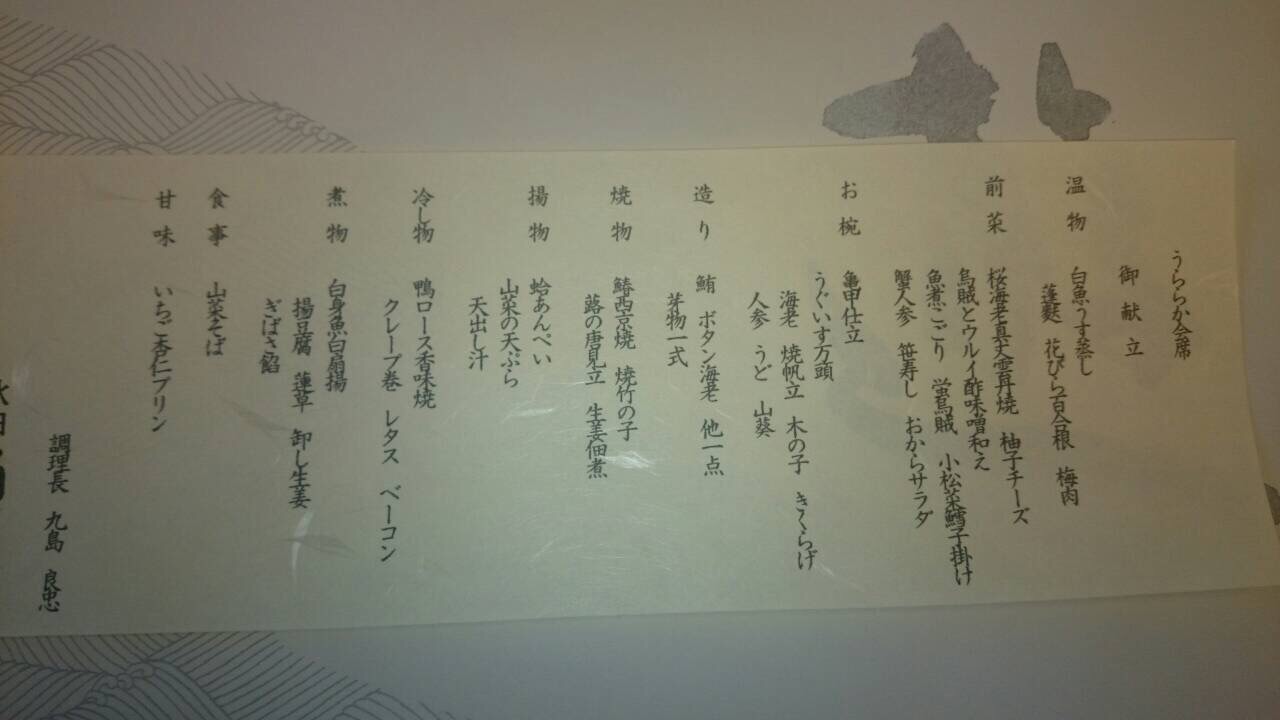 うららか会席
御献立
温物 白魚うす蒸し
蓬麩 花びら百合根 梅肉
前菜 桜海老真丈雲丹焼 柚子チーズ
烏賊とウルイ酢味噌和え
魚煮こごり 蛍烏賊 小松菜鱈子掛け
蟹人参 笹寿し おからサラダ
お椀 亀甲仕立
うぐいす万頭
海老 焼帆立 木の子 きくらげ
人参 うど 山葵
造り 鮪 ボタン海老 他一点
芽物一式
焼物 鰆西京焼 焼竹の子
蕗の唐見立 生姜佃煮
揚物 蛤あんぺい
山菜の天ぷら
天出し汁
冷し物 鴨ロース香味焼
クレープ巻 レタス ベーコン
煮物 白身魚白扇揚
揚豆腐 蓮草 卸し生姜
ぎばさ餡
食事 山菜そば
甘味 いちご杏仁プリン
調理長 九島 良忠